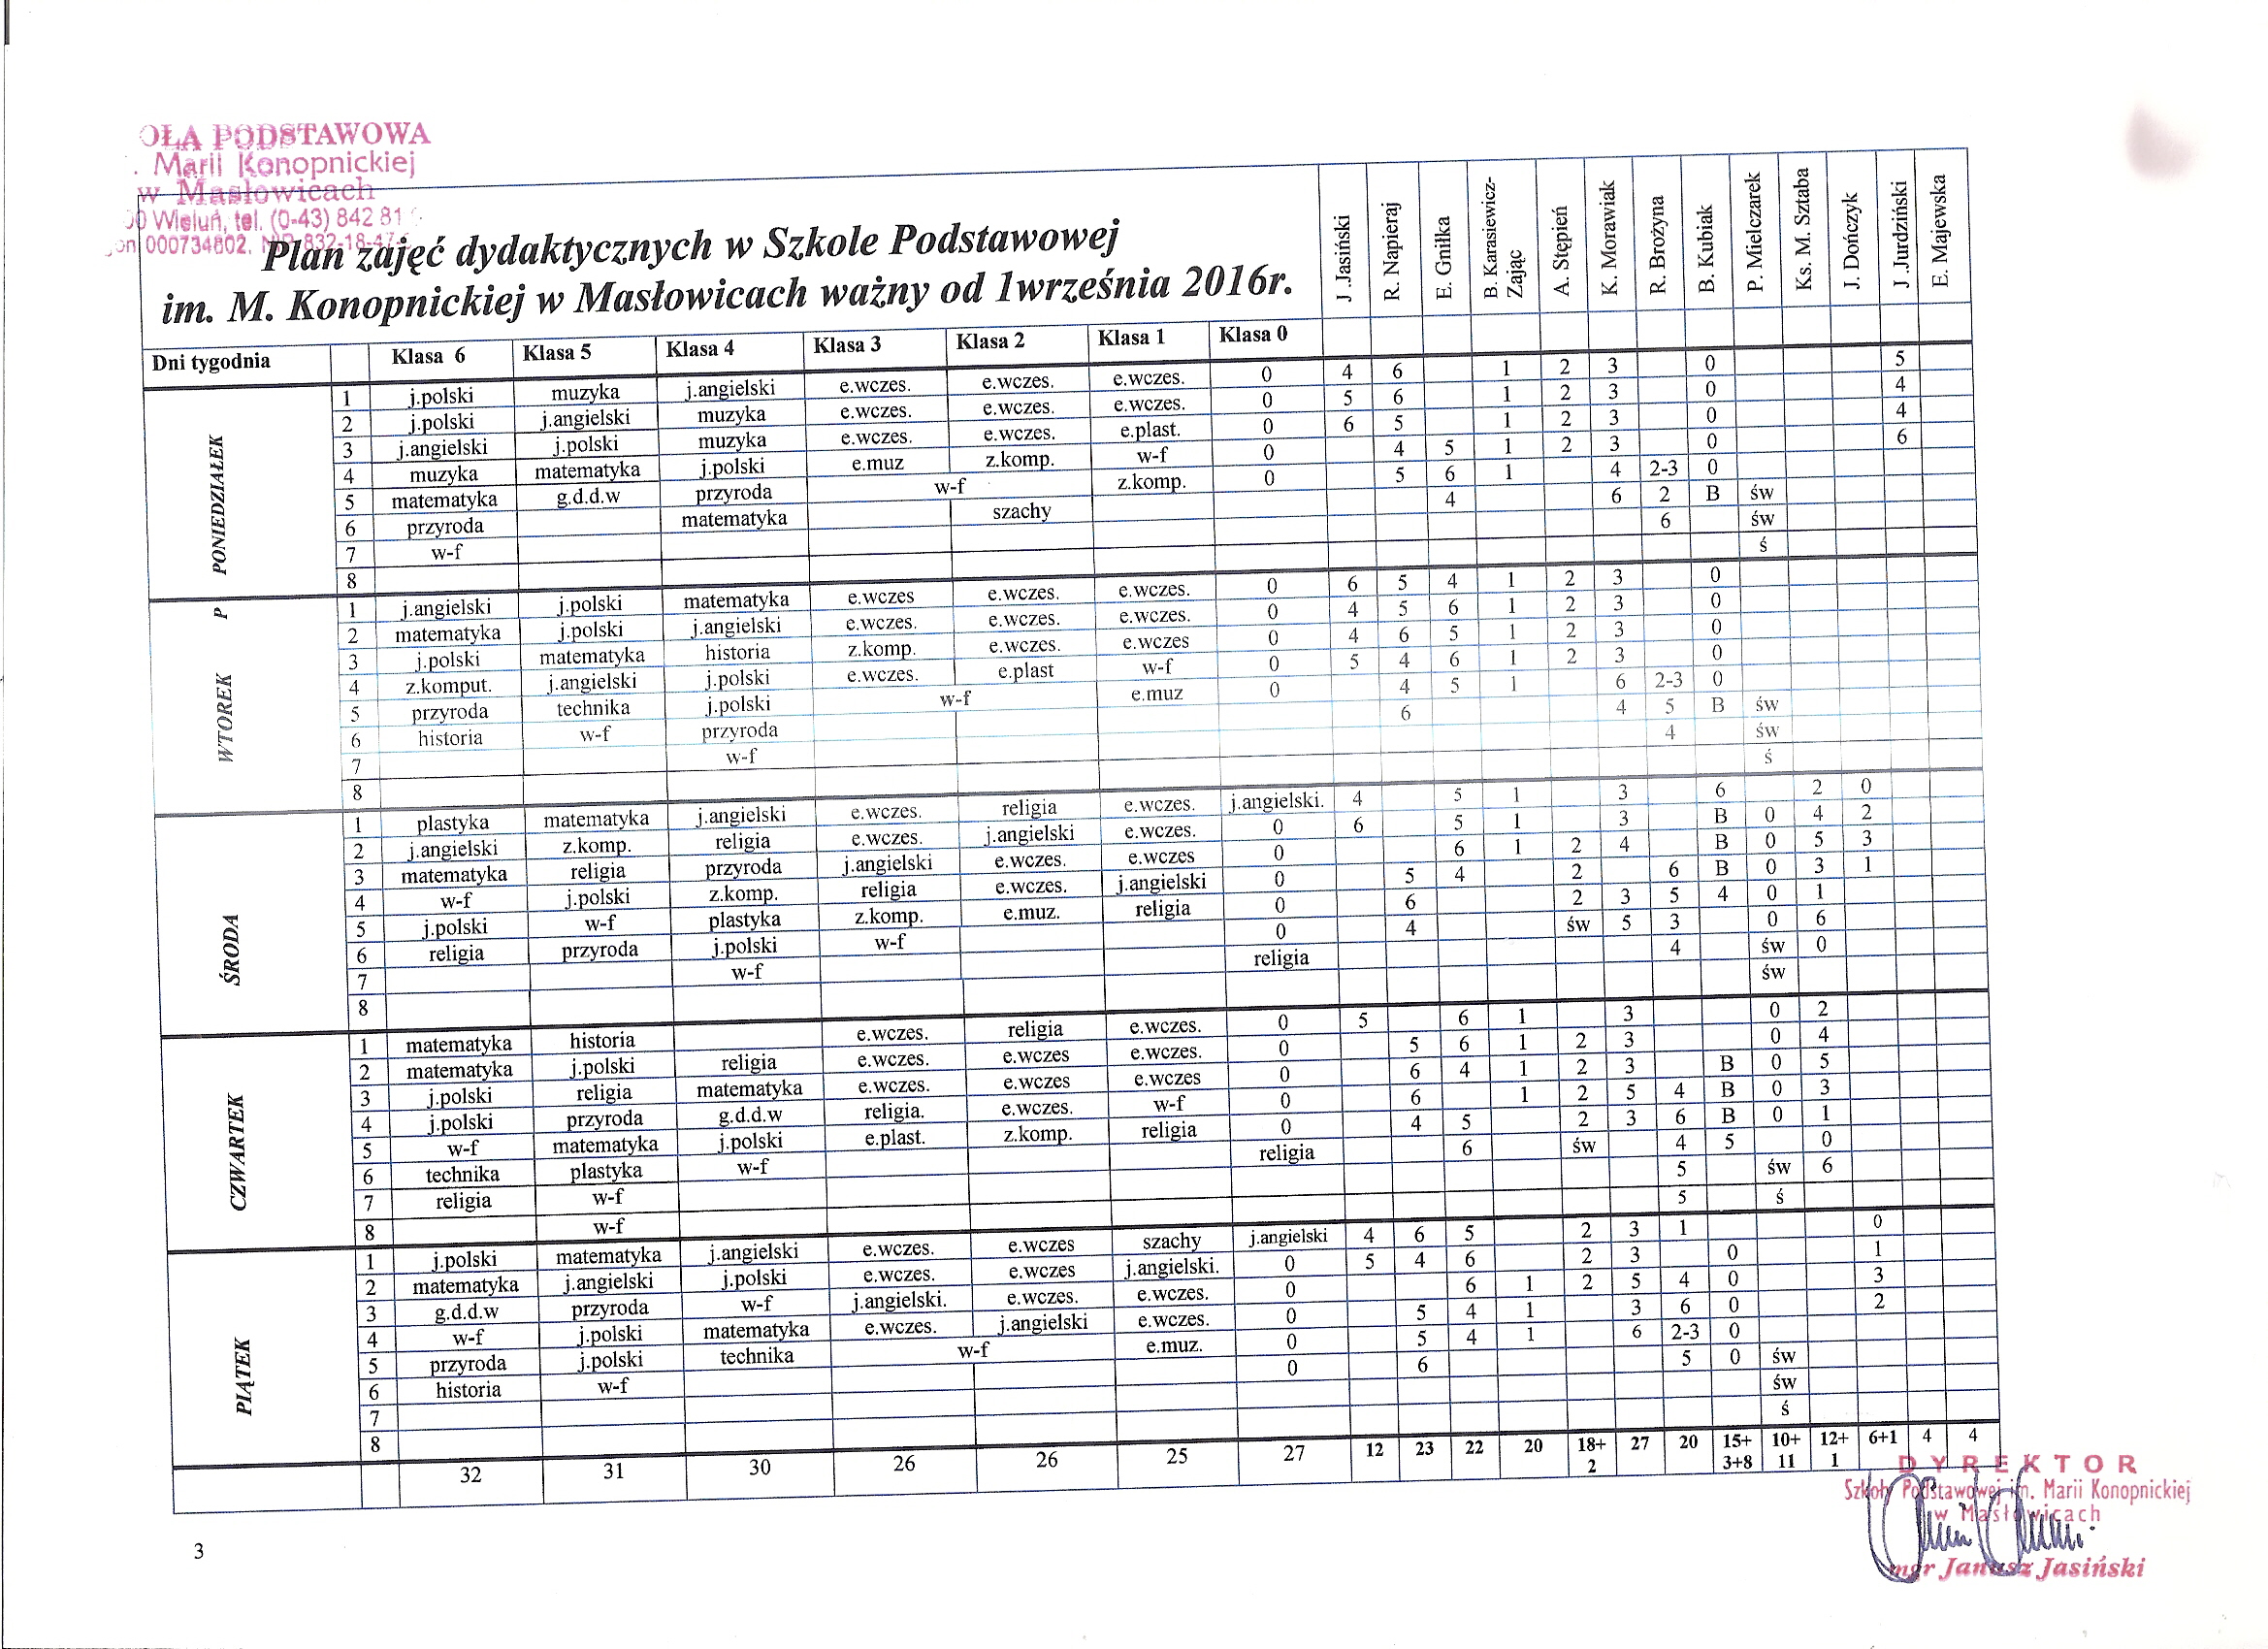 OŁA PODSTAWOWA
. Marii Konopnickiej
w Masłowicach
00 Wieluń, tel. (0-43) 842 81
on 000734802, NIP 832-18-47
Plan zajęć dydaktycznych w Szkole Podstawowej
im. M. Konopnickiej w Masłowicach ważny od 1września 2016r.
J .Jasiński R. Napieraj E. Gniłka B. Karasiewicz-Zając A. Stępień K. Morawiak R. Brożyna B. Kubiak P. Mielczarek Ks. M. Sztaba J. Dończyk J .Jurdziński E. Majewska
Dni tygodnia Klasa 6 Klasa 5 Klasa 4 Klasa 3 Klasa 2 Klasa 1 Klasa 0
PONIEDZIAŁEK
1 j.polski muzyka j.angielski e.wczes. e.wczes. e.wczes. 0 4 6 1 2 3 0 5
2 j.polski j.angielski muzyka e.wczes. e.wczes. e.wczes. 0 5 6 1 2 3 0 4
3 j.angielski j.polski muzyka e.wczes. e.wczes. e.plast. 0 6 5 1 2 3 0 4
4 muzyka matematyka j.polski e.muz z.komp. w-f 0 4 5 1 2 3 0 6
5 matematyka g.d.d.w przyroda w-f z.komp. 0 5 6 1 4 2-3 0
6 przyroda matematyka szachy 4 6 2 B św
7 w-f 6 św
8 ś
WTOREK P
1 j.angielski j.polski matematyka e.wczes e.wczes. e.wczes. 0 6 5 4 1 2 3 0
2 matematyka j.polski j.angielski e.wczes. e.wczes. e.wczes. 0 4 5 6 1 2 3 0
3 j.polski matematyka historia z.komp. e.wczes. e.wczes 0 4 6 5 1 2 3 0
4 z.komput. j.angielski j.polski e.wczes. e.plast w-f 0 5 4 6 1 2 3 0
5 przyroda technika j.polski w-f e.muz 0 4 5 1 6 2-3 0
6 historia w-f przyroda 6 4 5 B św
7 w-f 4 św
8 ś
ŚRODA
1 plastyka matematyka j.angielski e.wczes. religia e.wczes. j.angielski. 4 5 1 3 6 2 0
2 j.angielski z.komp. religia e.wczes. j.angielski e.wczes. 0 6 5 1 3 B 0 4 2
3 matematyka religia przyroda j.angielski e.wczes. e.wczes 0 6 1 2 4 B 0 5 3
4 w-f j.polski z.komp. religia e.wczes. j.angielski 0 5 4 2 6 B 0 3 1
5 j.polski w-f plastyka z.komp. e.muz. religia 0 6 2 3 5 4 0 1
6 religia przyroda j.polski w-f 0 4 św 5 3 0 6
7 w-f religia 4 św 0
8 św
CZWARTEK
1 matematyka historia e.wczes. religia e.wczes. 0 5 6 1 3 0 2
2 matematyka j.polski religia e.wczes. e.wczes e.wczes. 0 5 6 1 2 3 0 4
3 j.polski religia matematyka e.wczes. e.wczes e.wczes 0 6 4 1 2 3 B 0 5
4 j.polski przyroda g.d.d.w religia. e.wczes. w-f 0 6 1 2 5 4 B 0 3
5 w-f matematyka j.polski e.plast. z.komp. religia 0 4 5 2 3 6 B 0 1
6 technika plastyka w-f religia 6 św 4 5 0
7 religia w-f 5 św 6
8 w-f 5 ś
PIĄTEK
1 j.polski matematyka j.angielski e.wczes. e.wczes szachy j.angielski 4 6 5 2 3 1 0
2 matematyka j.angielski j.polski e.wczes. e.wczes j.angielski. 0 5 4 6 2 3 0 1
3 g.d.d.w przyroda w-f j.angielski. e.wczes. e.wczes. 0 6 1 2 5 4 0 3
4 w-f j.polski matematyka e.wczes. j.angielski e.wczes. 0 5 4 1 3 6 0 2
5 przyroda j.polski technika w-f e.muz. 0 5 4 1 6 2-3 0
6 historia w-f 0 6 5 0 św
7 św
8 ś
32 31 30 26 26 25 27 12 23 22 20 18+2 27 20 15+3+8 10+11 12+1 6+1 4 4
DYREKTOR
Szkoły Podstawowej im. Marii Konopnickiej
w Masłowicach
mgr Janusz Jasiński
3